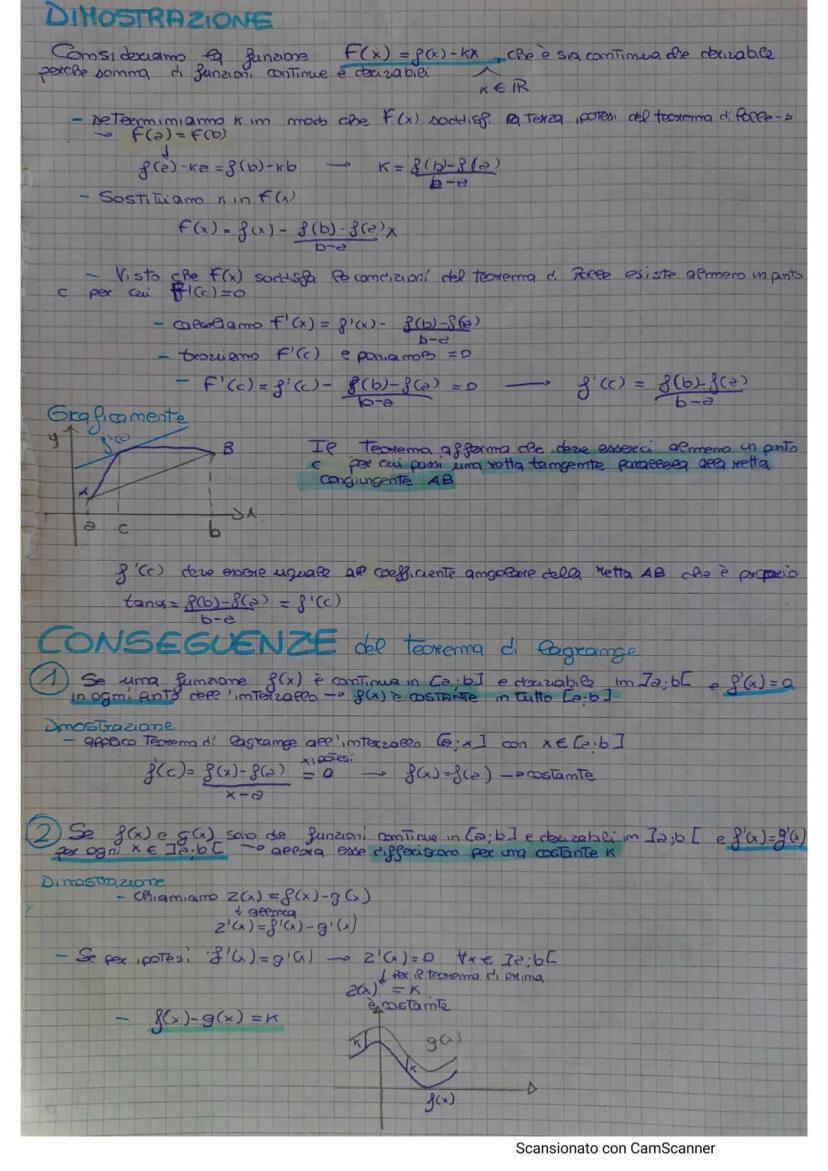 DIMOSTRAZIONE
Consideriamo la funzione F(x) = f(x) - kx, che è sia continua che derivabile
perché somma di funzioni continue e derivabili
k ∈ ℝ
- Determiniamo k in modo che F(x) soddisfi la terza ipotesi del teorema di Rolle
→ F(a) = F(b)
↓
f(a) - ka = f(b) - kb → k = f(b)-f(a) / b-a
- Sostituiamo k in F(x)
F(x) = f(x) - f(b)-f(a) / b-a x
- Visto che F(x) soddisfa le condizioni del teorema di Rolle esiste almeno un punto
c per cui F'(c)=0
- calcoliamo F'(x) = f'(x) - f(b)-f(a) / b-a
- troviamo F'(c) e poniamolo =0
- F'(c) = f'(c) - f(b)-f(a) / b-a = 0 → f'(c) = f(b)-f(a) / b-a
Graficamente
y f'(c) B
A
a c b x
Il Teorema afferma che deve esserci almeno un punto
c per cui passi una retta tangente parallela alla retta
congiungente AB
f'(c) deve essere uguale al coefficiente angolare della retta AB che è proprio
tanα = f(b)-f(a) / b-a = f'(c)
CONSEGUENZE del teorema di Lagrange
① Se una funzione f(x) è continua in [a;b] e derivabile in ]a;b[ e f'(x)=0
in ogni punto dell'intervallo → f(x) è costante in tutto [a;b]
Dimostrazione
- applico Teorema di Lagrange all'intervallo [a;x] con x ∈ [a;b]
f'(c) = f(x)-f(a) / x-a = 0 → f(x)=f(a) → costante
x ipotesi
② Se f(x) e g(x) sono due funzioni continue in [a;b] e derivabili in ]a;b[ e f'(x)=g'(x)
per ogni x ∈ ]a;b[ → allora esse differiscono per una costante k
Dimostrazione
- Chiamiamo z(x) = f(x)-g(x)
↓ allora
z'(x) = f'(x)-g'(x)
- Se per ipotesi f'(x)=g'(x) → z'(x)=0 ∀x ∈ ]a;b[
↓ per il teorema di prima
z(x) = k
è costante
- f(x)-g(x) = k
k g(x)
k
f(x)
Scansionato con CamScanner